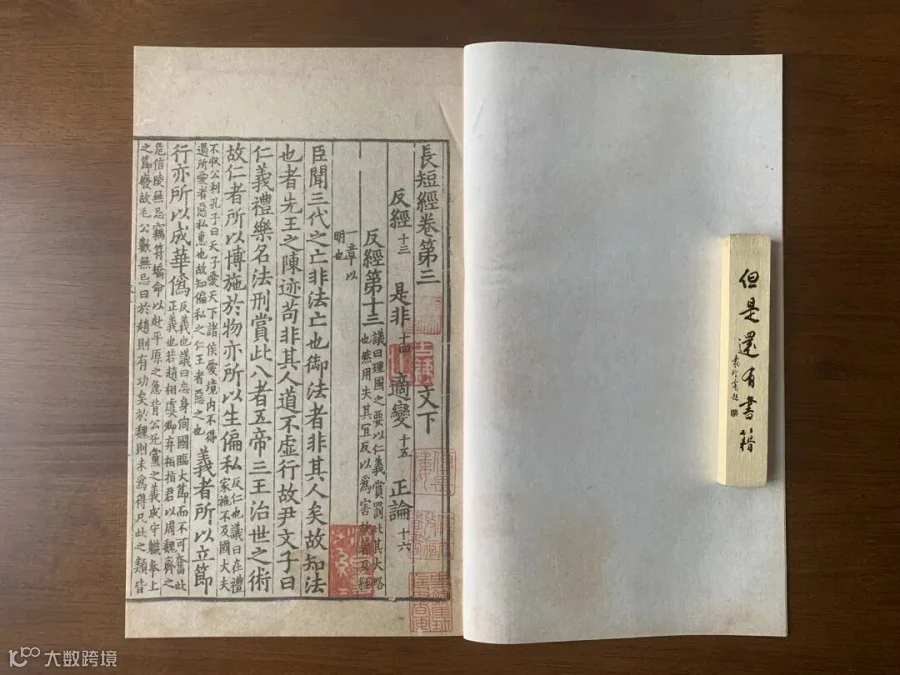 長短經卷第三 文下
反經十三 是非十四 適變十五 正論十六
反經第十三 議曰理國之要以仁義賞罰此其大略
也然用失其宜反以爲害故著反經
一章以
明也
臣聞三代之亡非法亡也御法者非其人矣故知法
也者先王之陳迹苟非其人道不虛行故尹文子曰
仁義禮樂名法刑賞此八者五帝三王治世之術
故仁者所以博施於物亦所以生偏私 反仁也議曰在禮
家施不及國大夫
不收公利孔子曰天子愛天下諸侯愛境内不得
過所愛者惡私惠也故知偏私之仁王者惡之也 義者所以立節
行亦所以成華僞 反義也議曰忘身徇國臨大節而不可奪此
正義也若趙相虞卿弃相捐君以周魏齊之
危信陵無忌竊符矯命以赴平原之急背公死黨之義成守職奉上
之節廢故毛公數無忌曰於趙則有功矣於魏則未爲得凡此之類皆
但是還有書籍
大数跨境